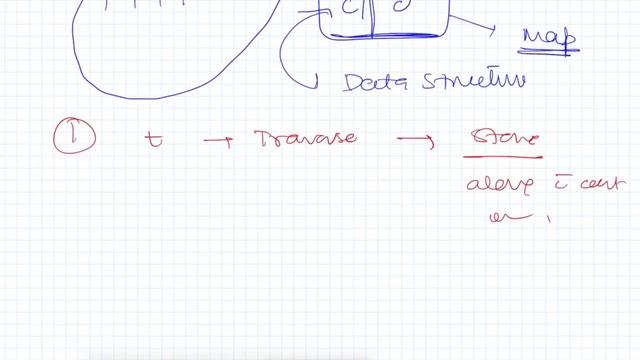 C/ c
Map
Data Structure
1 t → Travase → Store
along c̄ count